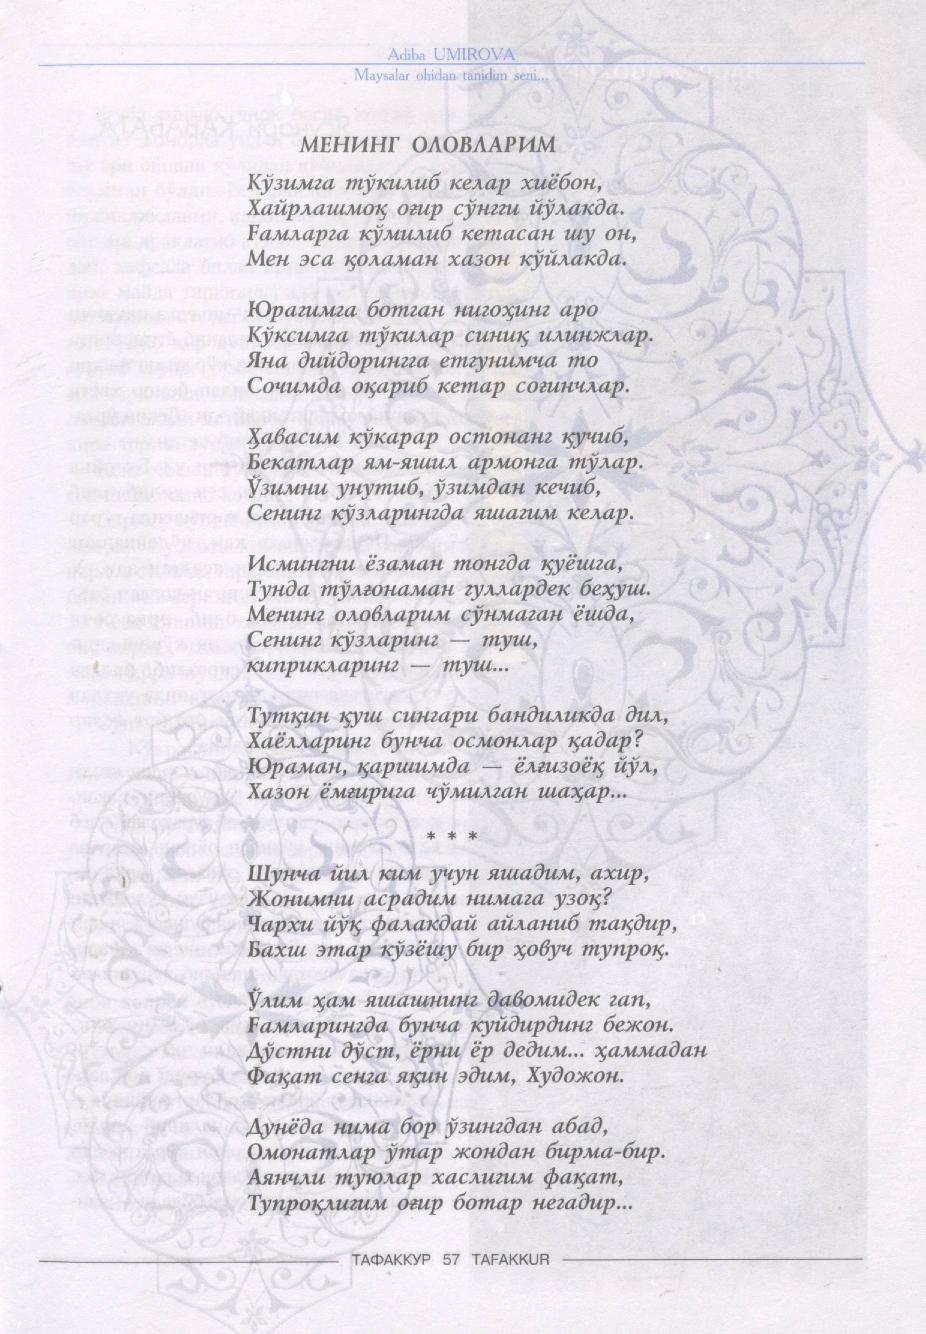 Adiba UMIROVA
Maysalar ohidan tanidim seni...
МЕНИНГ ОЛОВЛАРИМ
Кўзимга тўкилиб келар хиёбон,
Хайрлашмоқ оғир сўнгги йўлакда.
Ғамларга кўмилиб кетасан шу он,
Мен эса қоламан хазон кўйлакда.
Юрагимга ботган нигоҳинг аро
Кўксимга тўкилар синиқ илинжлар.
Яна дийдорингга етгунимча то
Сочимда оқариб кетар соғинчлар.
Ҳавасим кўкарар остонанг қучиб,
Бекатлар ям-яшил армонга тўлар.
Ўзимни унутиб, ўзимдан кечиб,
Сенинг кўзларингда яшагим келар.
Исмингни ёзаман тонгда қуёшга,
Тунда тўлғонаман гуллардек беҳуш.
Менинг оловларим сўнмаган ёшда,
Сенинг кўзларинг — туш,
киприкларинг — туш...
Тутқин қуш сингари бандиликда дил,
Хаёлларинг бунча осмонлар қадар?
Юраман, қаршимда — ёлғизоёқ йўл,
Хазон ёмғирига чўмилган шаҳар...
* * *
Шунча йил ким учун яшадим, ахир,
Жонимни асрадим нимага узоқ?
Чархи йўқ фалакдай айланиб тақдир,
Бахш этар кўзёшу бир ҳовуч тупроқ.
Ўлим ҳам яшашнинг давомидек гап,
Ғамларингда бунча куйдирдинг бежон.
Дўстни дўст, ёрни ёр дедим... ҳаммадан
Фақат сенга яқин эдим, Художон.
Дунёда нима бор ўзингдан абад,
Омонатлар ўтар жондан бирма-бир.
Аянчли туюлар хаслигим фақат,
Тупроқлигим оғир ботар негадир...
ТАФАККУР 57 TAFAKKUR